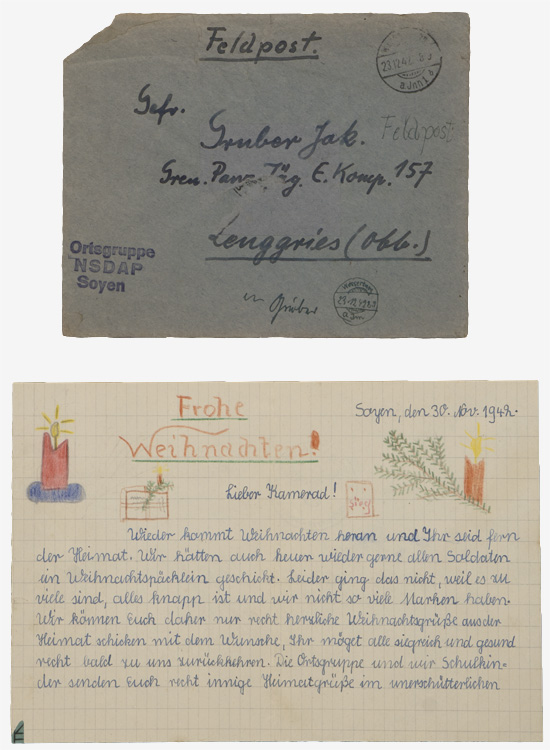 Feldpost.
23.12.42
a Jnn
Gefr.
Feldpost
Gruber Jak.
Gren. Panz. Jäg. E. Komp. 157
Lenggries (Obb.)
Ortsgruppe
NSDAP
Soyen
Gruber
Frohe
Soyen, den 30. Nov. 1942.
Weihnachten!
Lieber Kamerad!
Wieder kommt Weihnachten heran und Ihr seid fern
der Heimat. Wir hätten auch heuer wieder gerne allen Soldaten
ein Weihnachtspäcklein geschickt. Leider ging das nicht, weil es zu
viele sind, alles knapp ist und wir nicht so viele Marken haben.
Wir können Euch daher nur recht herzliche Weihnachtsgrüße aus der
Heimat schicken mit dem Wunsche, Ihr möget alle siegreich und gesund
recht bald zu uns zurückkehren. Die Ortsgruppe und wir Schulkin-
der senden Euch recht innige Heimatgrüße im unerschütterlichen